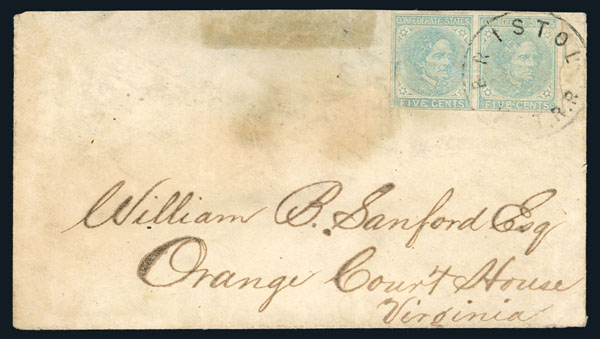 CONFEDERATE STATES CONFEDERATE STATES
FIVE CENTS FIVE CENTS
BRISTOL
T.R.R.
William B. Sanford Esq
Orange Court House
Virginia